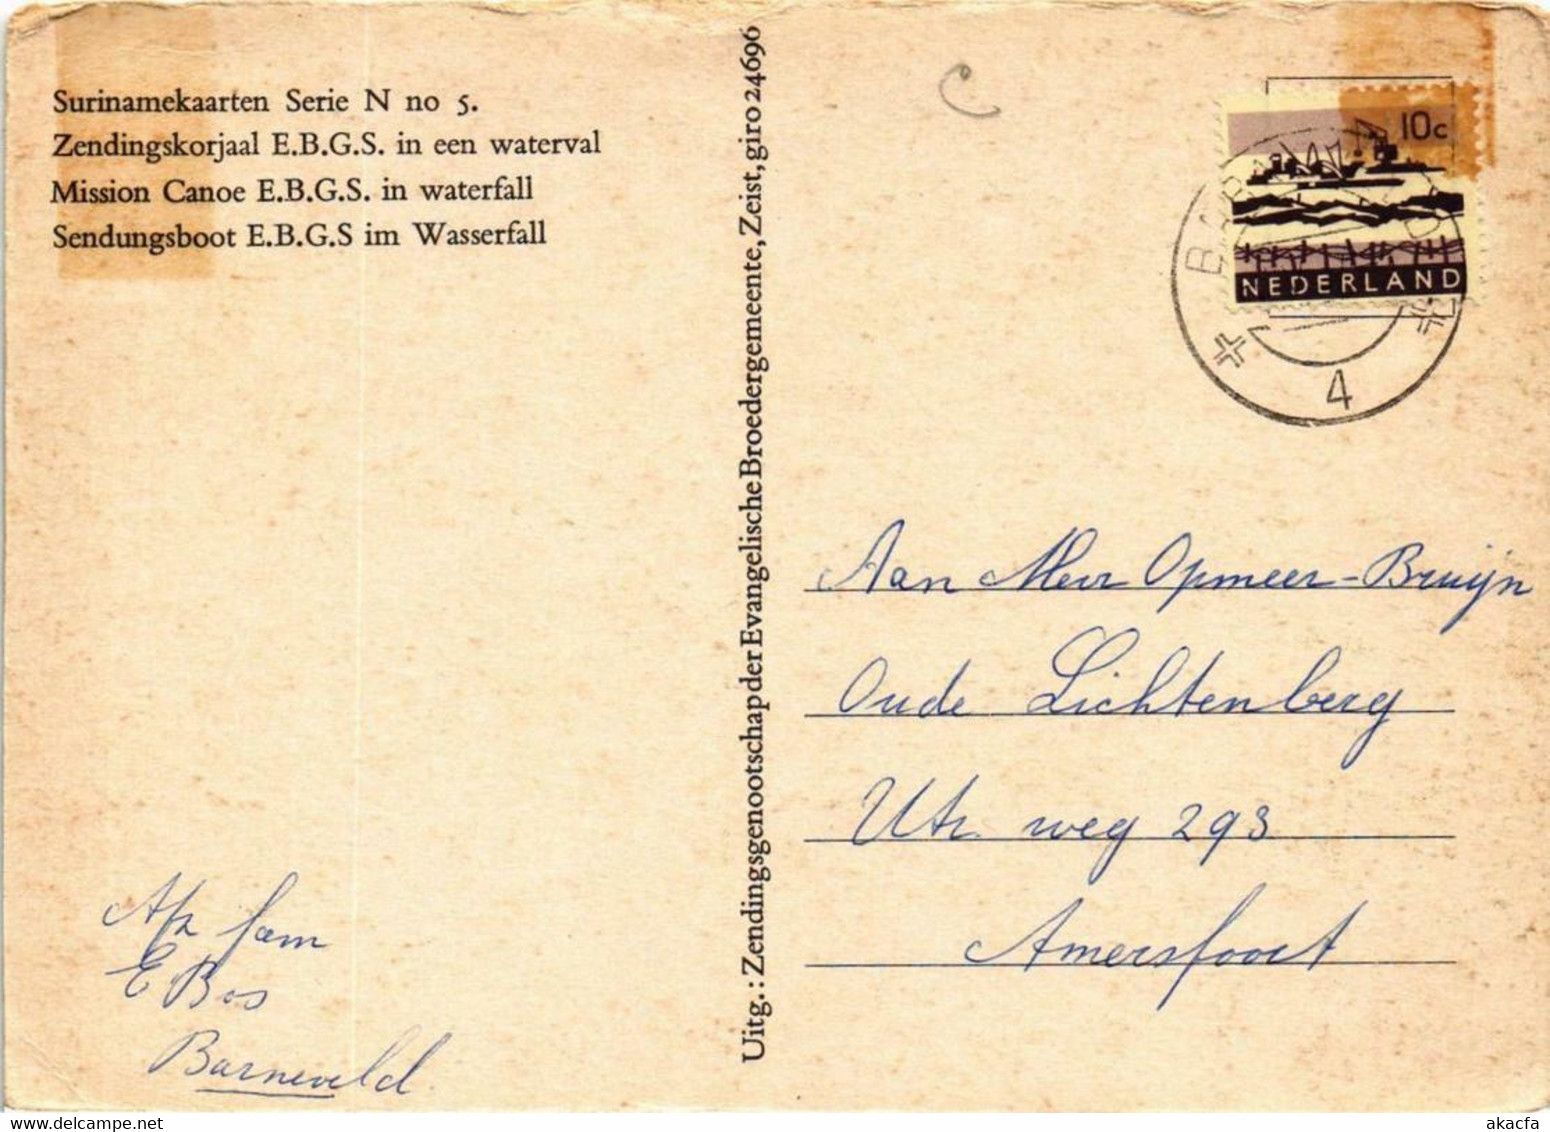 Surinamekaarten Serie N no 5.
Zendingskorjaal E.B.G.S. in een waterval
Mission Canoe E.B.G.S. in waterfall
Sendungsboot E.B.G.S im Wasserfall
Uitg.: Zendingsgenootschap der Evangelische Broedergemeente, Zeist, giro 24696
C
10c
NEDERLAND
4
Aan Mevr Opmeer-Bruijn
Oude Lichtenberg
Utr. weg 293
Amersfoort
Afz fam
E Bos
Barneveld
akacfa